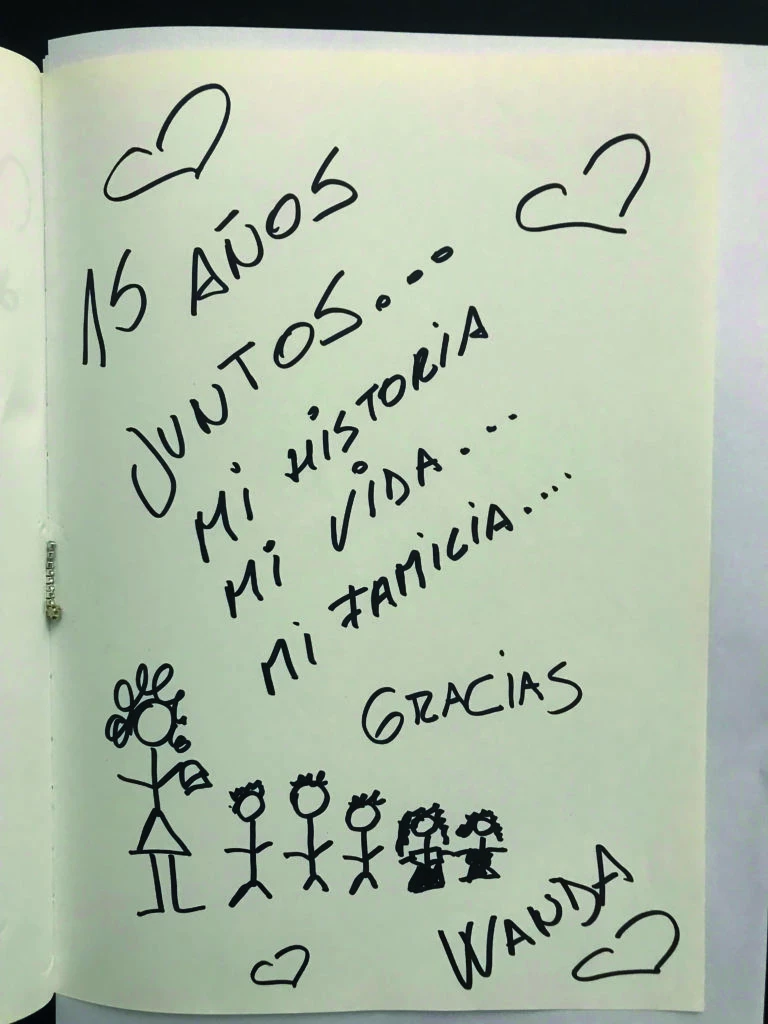 15 AÑOS
JUNTOS...
Mi HiSTORiA
Mi ViDA...
Mi FAMiLiA....
GRACiAS
WANDA